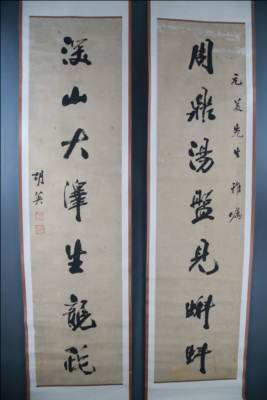 元美先生雅嘱
周鼎湯盤見蝌蚪
深山大澤生龍蛇
胡英